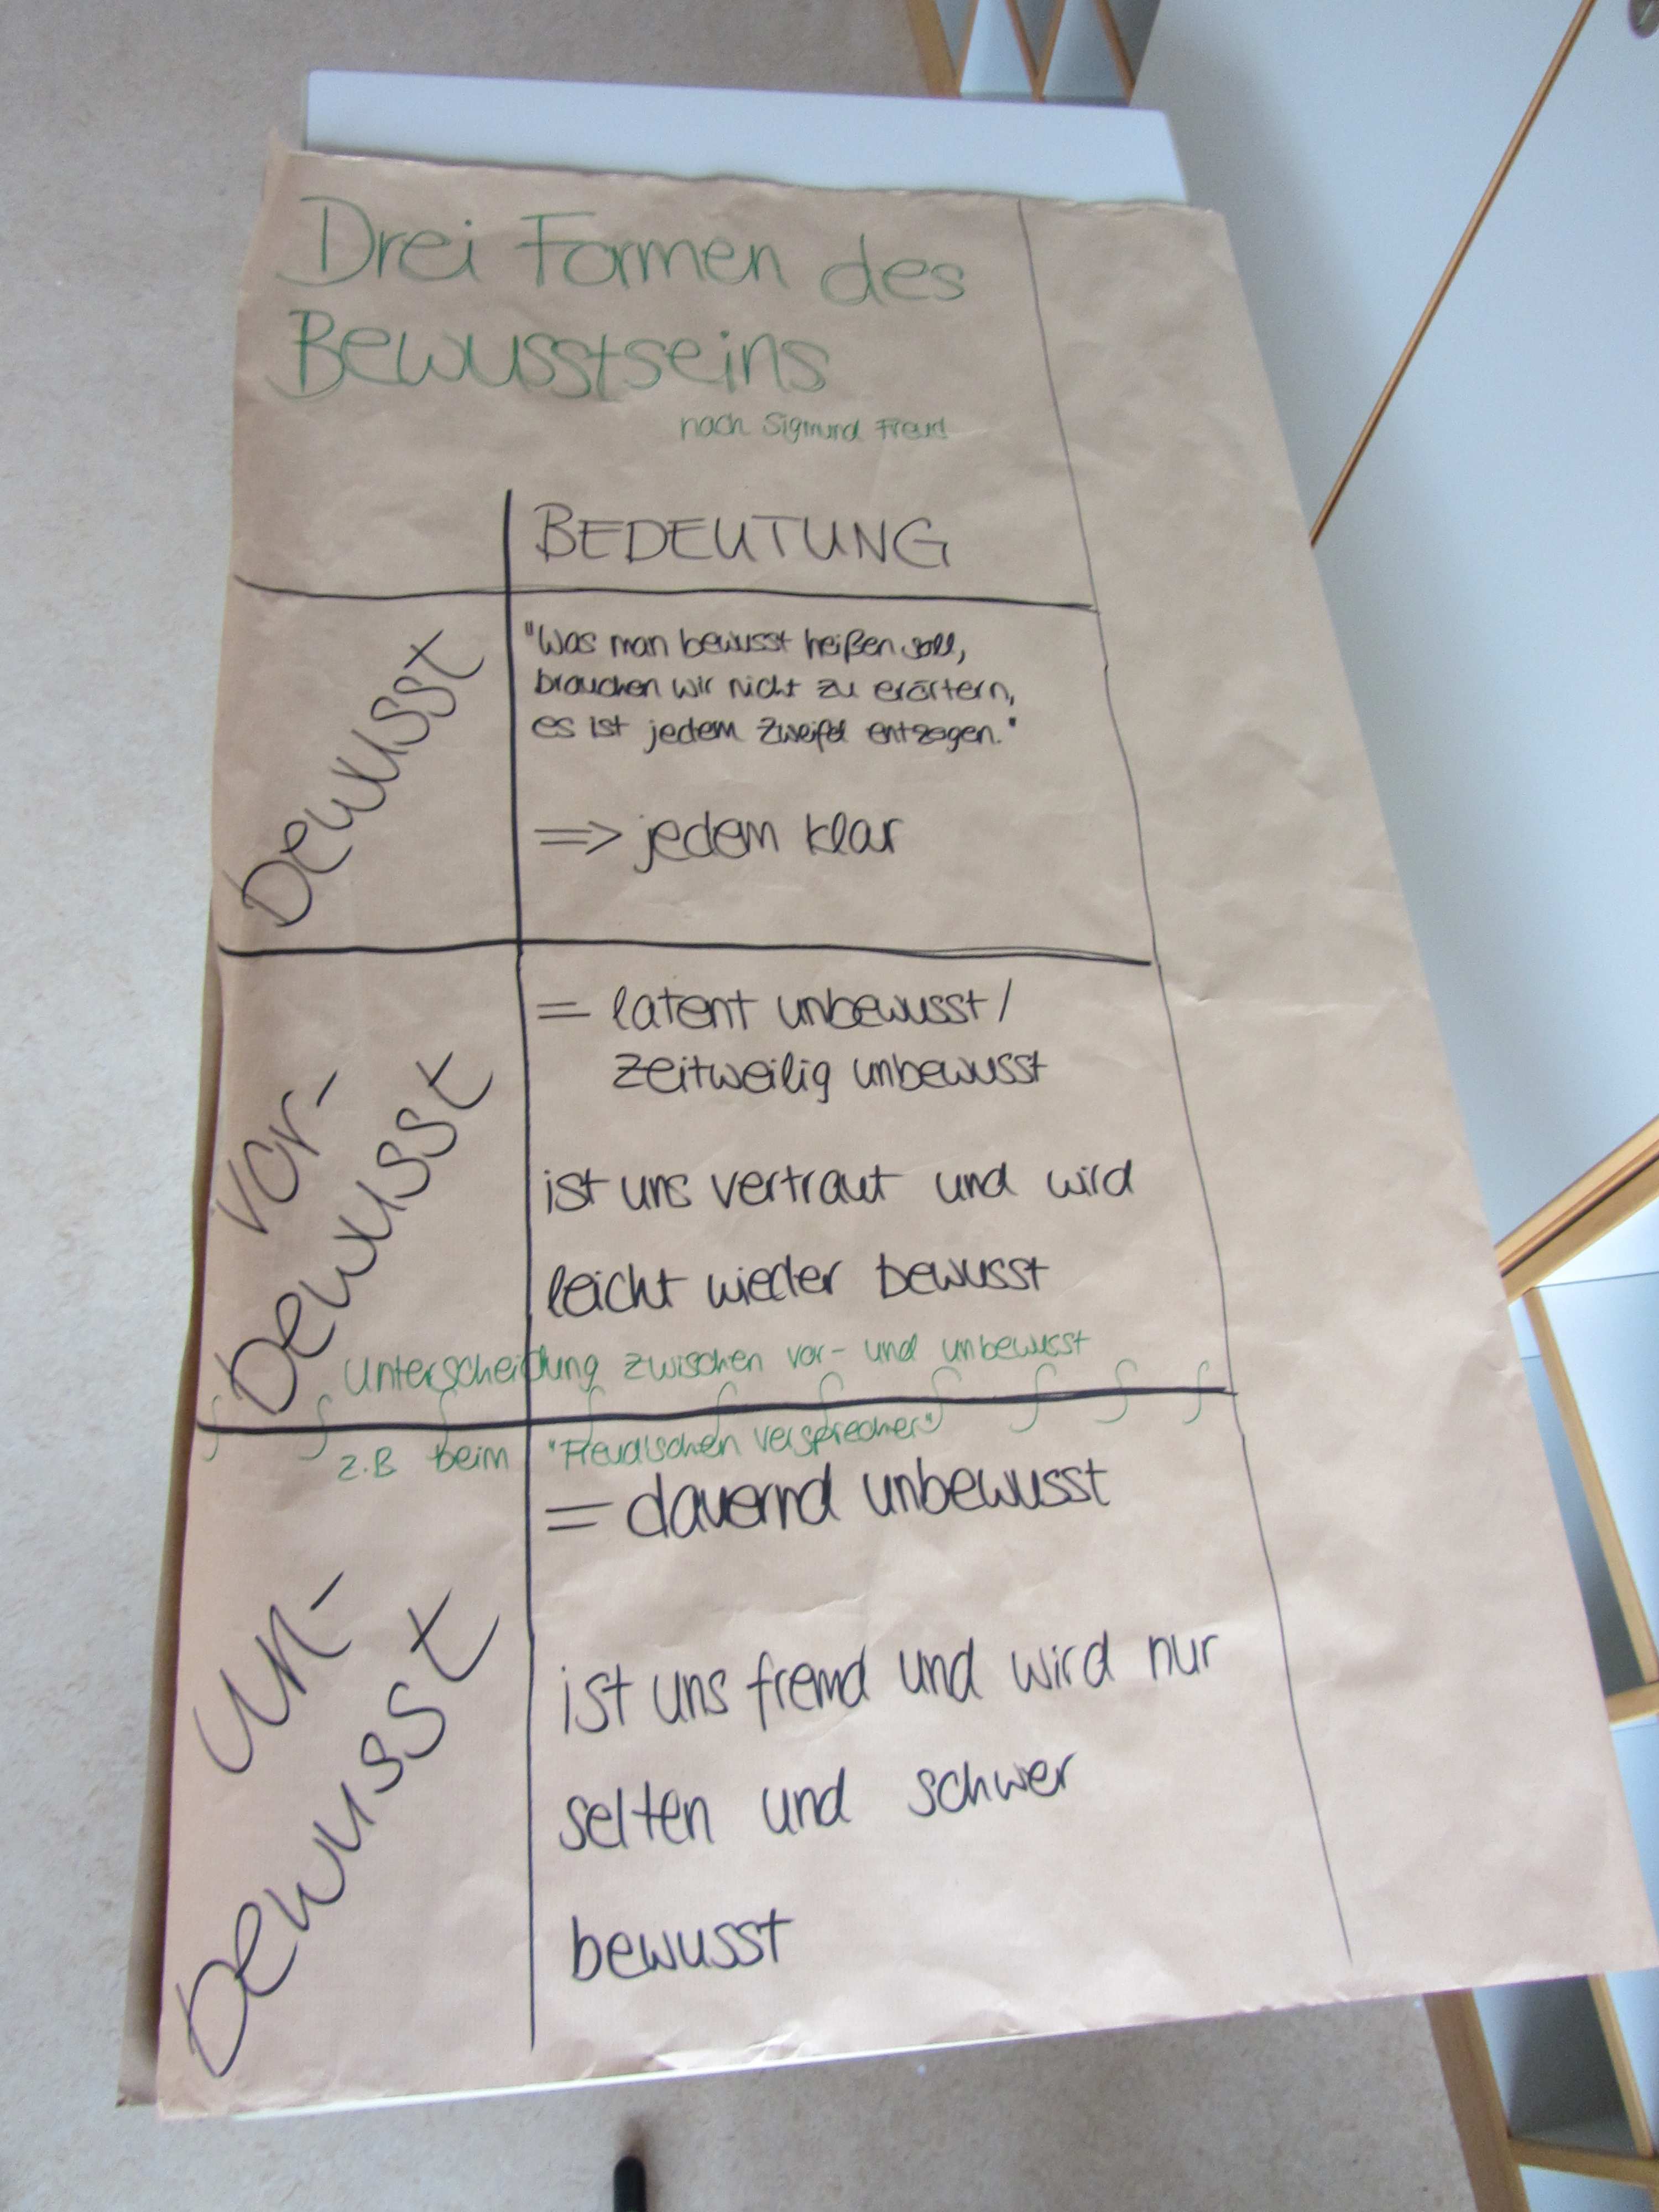 Drei Formen des
Bewusstseins
nach Sigmund Freud
BEDEUTUNG
bewusst
"Was man bewusst heißen soll,
brauchen wir nicht zu erörtern,
es ist jedem Zweifel entzogen."
=> jedem klar
vor-
bewusst
= latent unbewusst/
zeitweilig unbewusst
ist uns vertraut und wird
leicht wieder bewusst
Unterscheidung zwischen vor- und unbewusst
z.B beim "Freudschen Versprecher"
un-
bewusst
= dauernd unbewusst
ist uns fremd und wird nur
selten und schwer
bewusst